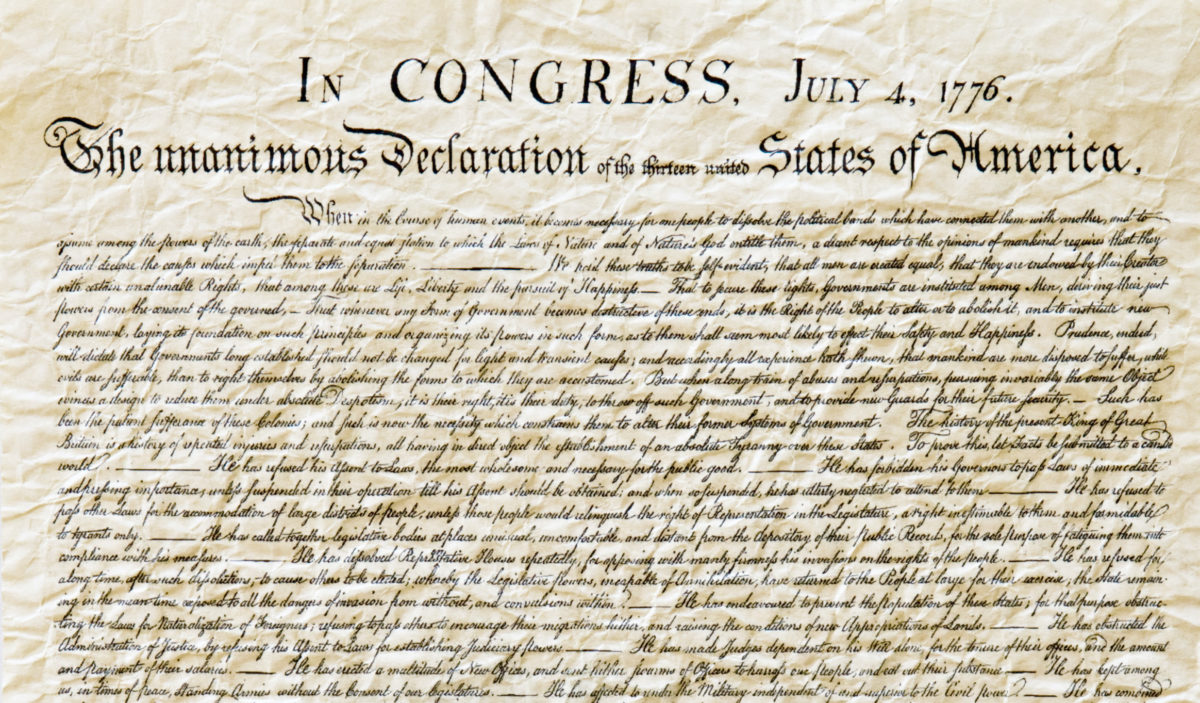 IN CONGRESS, JULY 4, 1776.
The unanimous Declaration of the thirteen united States of America.
When in the Course of human events, it becomes necessary for one people to dissolve the political bands which have connected them with another, and to
assume among the powers of the earth, the separate and equal station to which the Laws of Nature and of Nature's God entitle them, a decent respect to the opinions of mankind requires that they
should declare the causes which impel them to the separation. ——— We hold these truths to be self-evident, that all men are created equal, that they are endowed by their Creator
with certain unalienable Rights, that among these are Life, Liberty and the pursuit of Happiness — That to secure these rights, Governments are instituted among Men, deriving their just
powers from the consent of the governed, — That whenever any Form of Government becomes destructive of these ends, it is the Right of the People to alter or to abolish it, and to institute new
Government, laying its foundation on such principles and organizing its powers in such form, as to them shall seem most likely to effect their Safety and Happiness. Prudence, indeed,
will dictate that Governments long established should not be changed for light and transient causes; and accordingly all experience hath shewn, that mankind are more disposed to suffer, while
evils are sufferable, than to right themselves by abolishing the forms to which they are accustomed. But when a long train of abuses and usurpations, pursuing invariably the same Object
evinces a design to reduce them under absolute Despotism, it is their right, it is their duty, to throw off such Government, and to provide new Guards for their future security. — Such has
been the patient sufferance of these Colonies; and such is now the necessity which constrains them to alter their former Systems of Government. The history of the present King of Great
Britain is a history of repeated injuries and usurpations, all having in direct object the establishment of an absolute Tyranny over these States. To prove this, let Facts be submitted to a candid
world. ——— He has refused his Assent to Laws, the most wholesome and necessary for the public good. ——— He has forbidden his Governors to pass Laws of immediate
and pressing importance, unless suspended in their operation till his Assent should be obtained; and when so suspended, he has utterly neglected to attend to them ——— He has refused to
pass other Laws for the accommodation of large districts of people, unless those people would relinquish the right of Representation in the Legislature, a right inestimable to them and formidable
to tyrants only. ——— He has called together legislative bodies at places unusual, uncomfortable, and distant from the depository of their public Records, for the sole purpose of fatiguing them into
compliance with his measures. ——— He has dissolved Representative Houses repeatedly, for opposing with manly firmness his invasions on the rights of the people. ——— He has refused for
a long time, after such dissolutions, to cause others to be elected; whereby the Legislative powers, incapable of Annihilation, have returned to the People at large for their exercise; the State remain-
ing in the mean time exposed to all the dangers of invasion from without, and convulsions within. ——— He has endeavoured to prevent the population of these States; for that purpose obstruc-
ting the Laws for Naturalization of Foreigners; refusing to pass others to encourage their migrations hither, and raising the conditions of new Appropriations of Lands. ——— He has obstructed the
Administration of Justice, by refusing his Assent to Laws for establishing Judiciary powers ——— He has made Judges dependent on his Will alone, for the tenure of their offices, and the amount
and payment of their salaries. ——— He has erected a multitude of New Offices, and sent hither swarms of Officers to harrass our people, and eat out their substance — He has kept among
us, in times of peace, Standing Armies without the Consent of our legislatures. ——— He has affected to render the Military independent of and superior to the Civil power. — He has combined